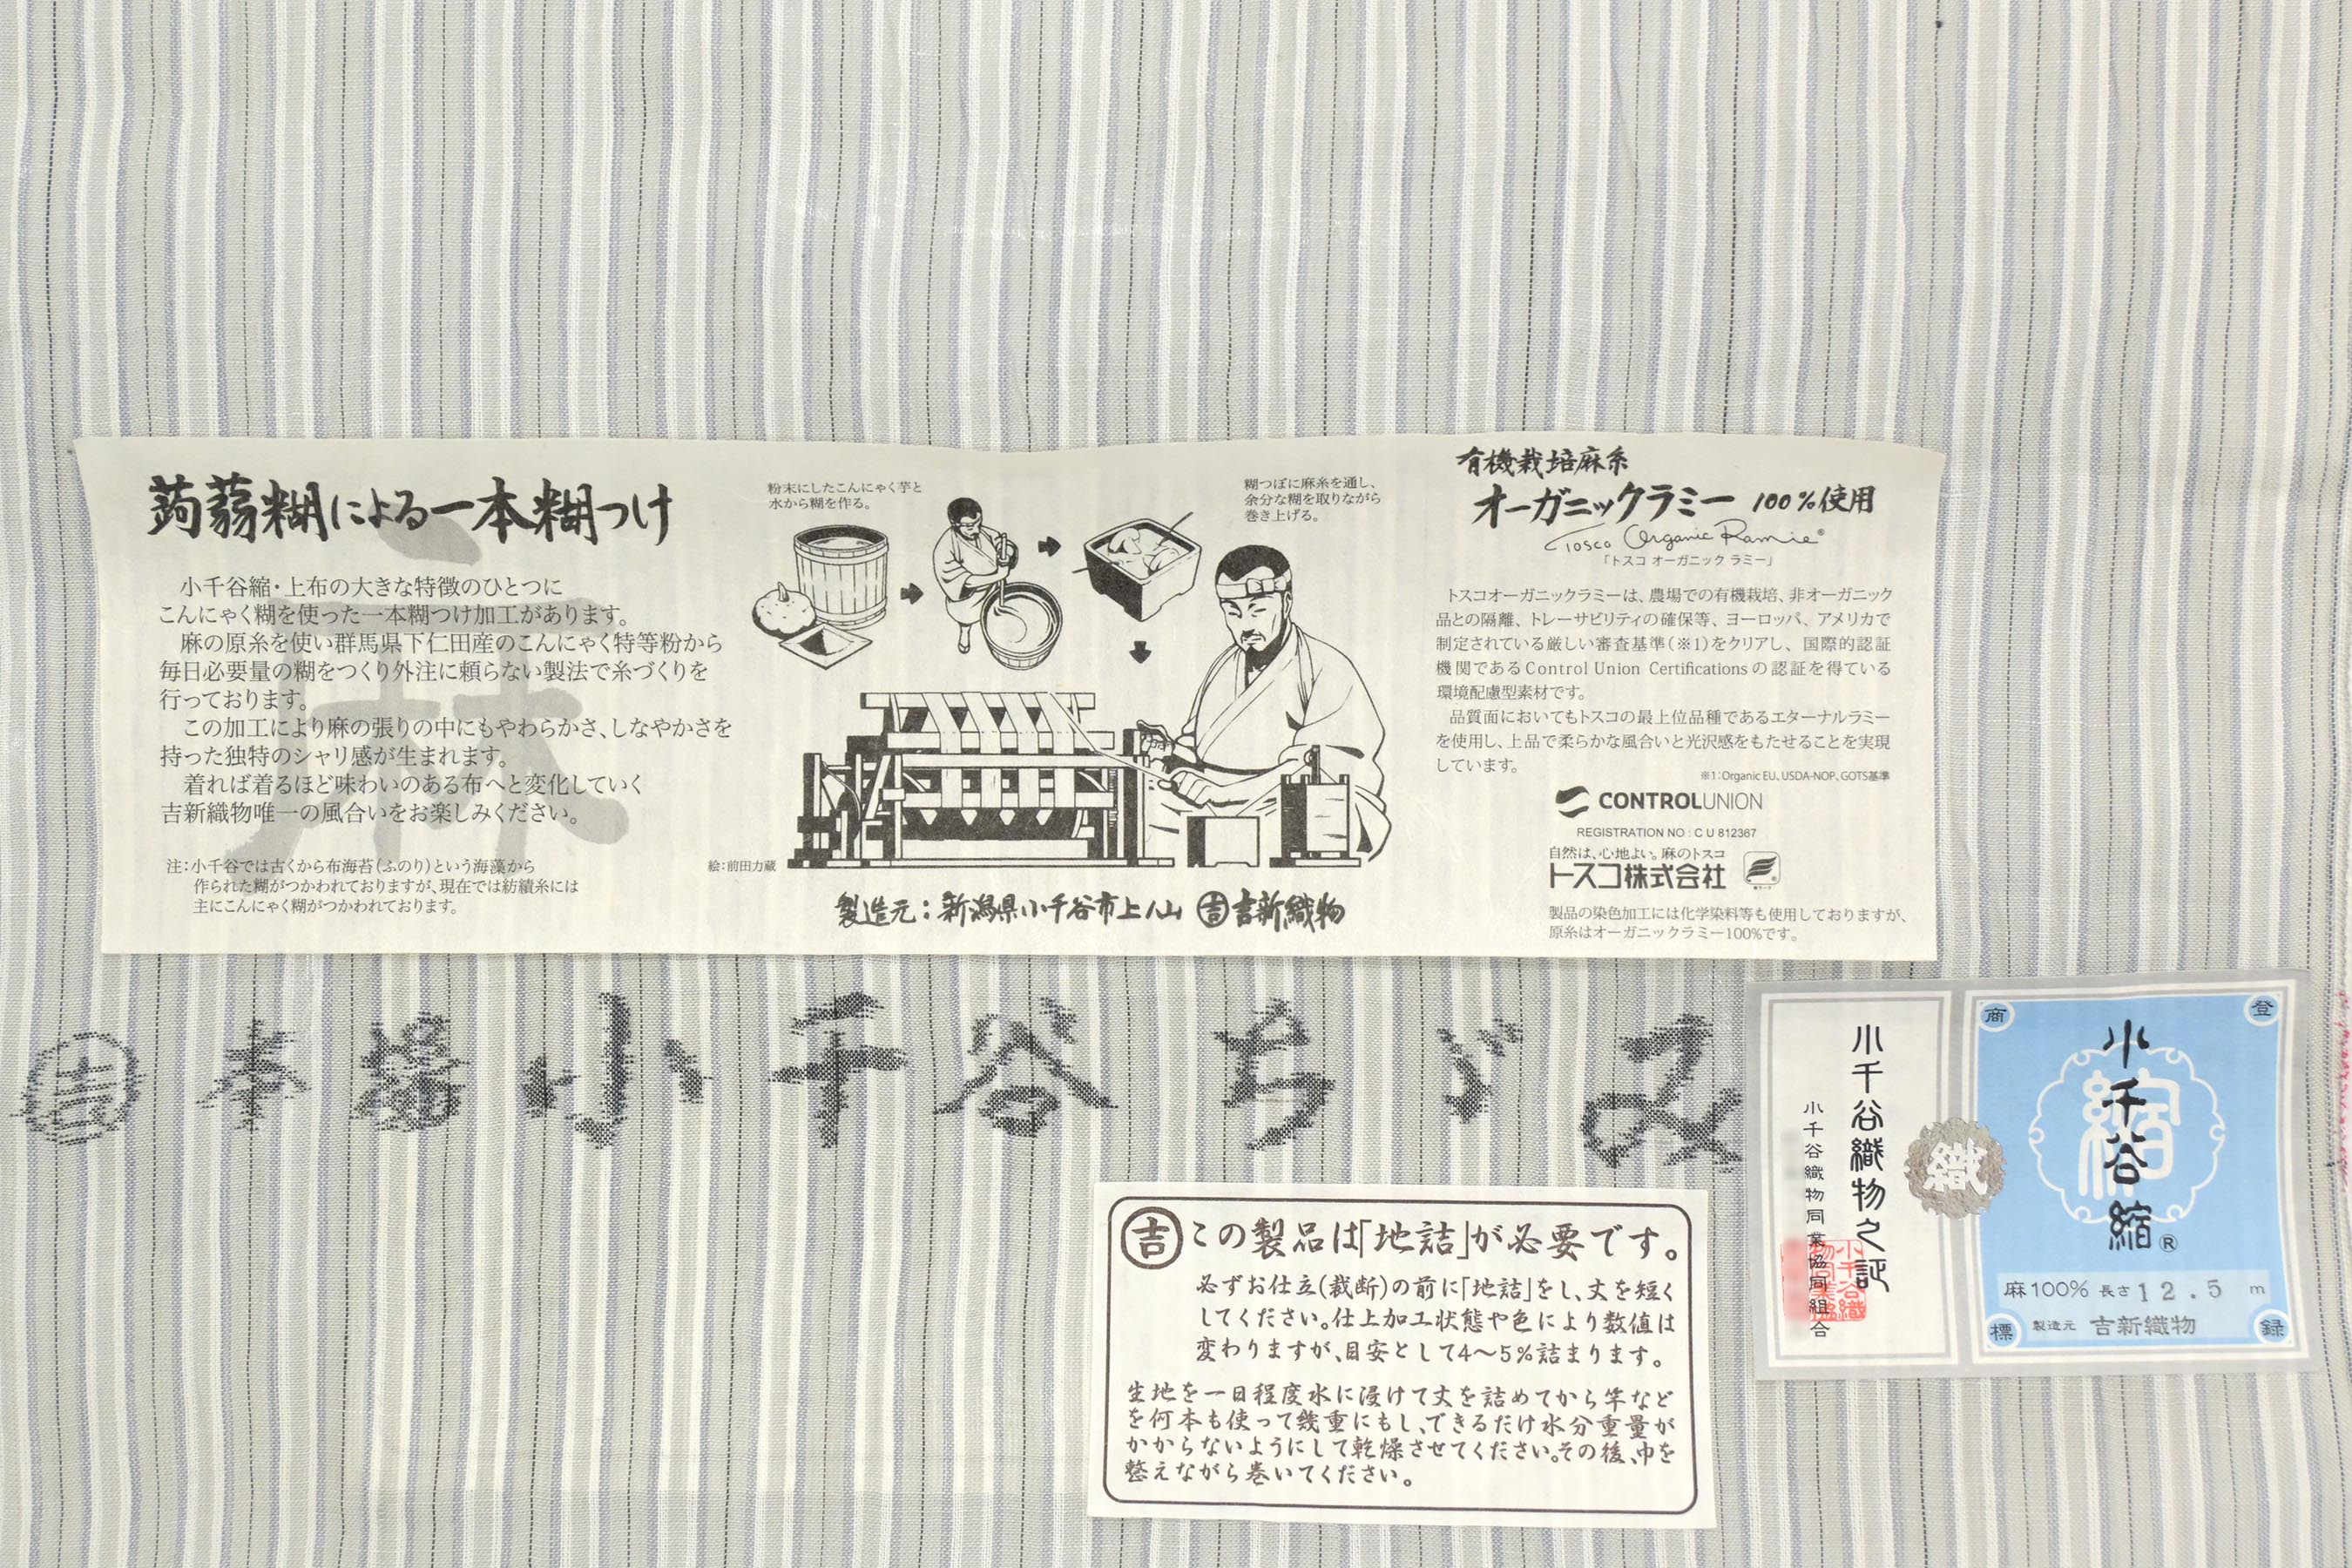 蒟蒻糊による一本糊つけ
小千谷縮・上布の大きな特徴のひとつに
こんにゃく糊を使った一本糊つけ加工があります。
麻の原糸を使い群馬県下仁田産のこんにゃく特等粉から
毎日必要量の糊をつくり外注に頼らない製法で糸づくりを
行っております。
この加工により麻の張りの中にもやわらかさ、しなやかさを
持った独特のシャリ感が生まれます。
着れば着るほど味わいのある布へと変化していく
吉新織物唯一の風合いをお楽しみください。
麻
注:小千谷では古くから布海苔(ふのり)という海藻から
作られた糊がつかわれておりますが、現在では紡績糸には
主にこんにゃく糊がつかわれております。
粉末にしたこんにゃく芋と
水から糊を作る。
糊つぼに麻糸を通し、
余分な糊を取りながら
巻き上げる。
絵:前田力蔵
製造元:新潟県小千谷市上ノ山 吉 吉新織物
有機栽培麻糸
オーガニックラミー 100%使用
Tosco Organic Ramie®
「トスコ オーガニック ラミー」
トスコオーガニックラミーは、農場での有機栽培、非オーガニック
品との隔離、トレーサビリティの確保等、ヨーロッパ、アメリカで
制定されている厳しい審査基準(※1)をクリアし、国際的認証
機関であるControl Union Certificationsの認証を得ている
環境配慮型素材です。
品質面においてもトスコの最上位品種であるエターナルラミー
を使用し、上品で柔らかな風合いと光沢感をもたせることを実現
しています。
※1:Organic EU、USDA-NOP、GOTS基準
CONTROLUNION
REGISTRATION NO : C U 812367
自然は、心地よい。麻のトスコ
トスコ株式会社
製品の染色加工には化学染料等も使用しておりますが、
原糸はオーガニックラミー100%です。
吉 本場小千谷ちぢみ
吉 この製品は「地詰」が必要です。
必ずお仕立(裁断)の前に「地詰」をし、丈を短く
してください。仕上加工状態や色により数値は
変わりますが、目安として4〜5%詰まります。
生地を一日程度水に浸けて丈を詰めてから竿など
を何本も使って幾重にもし、できるだけ水分重量が
かからないようにして乾燥させてください。その後、巾を
整えながら巻いてください。
小千谷織物之証
小千谷織物同業協同組合
織
登録商標
縮
小千谷縮®
麻100% 長さ12.5m
製造元 吉新織物